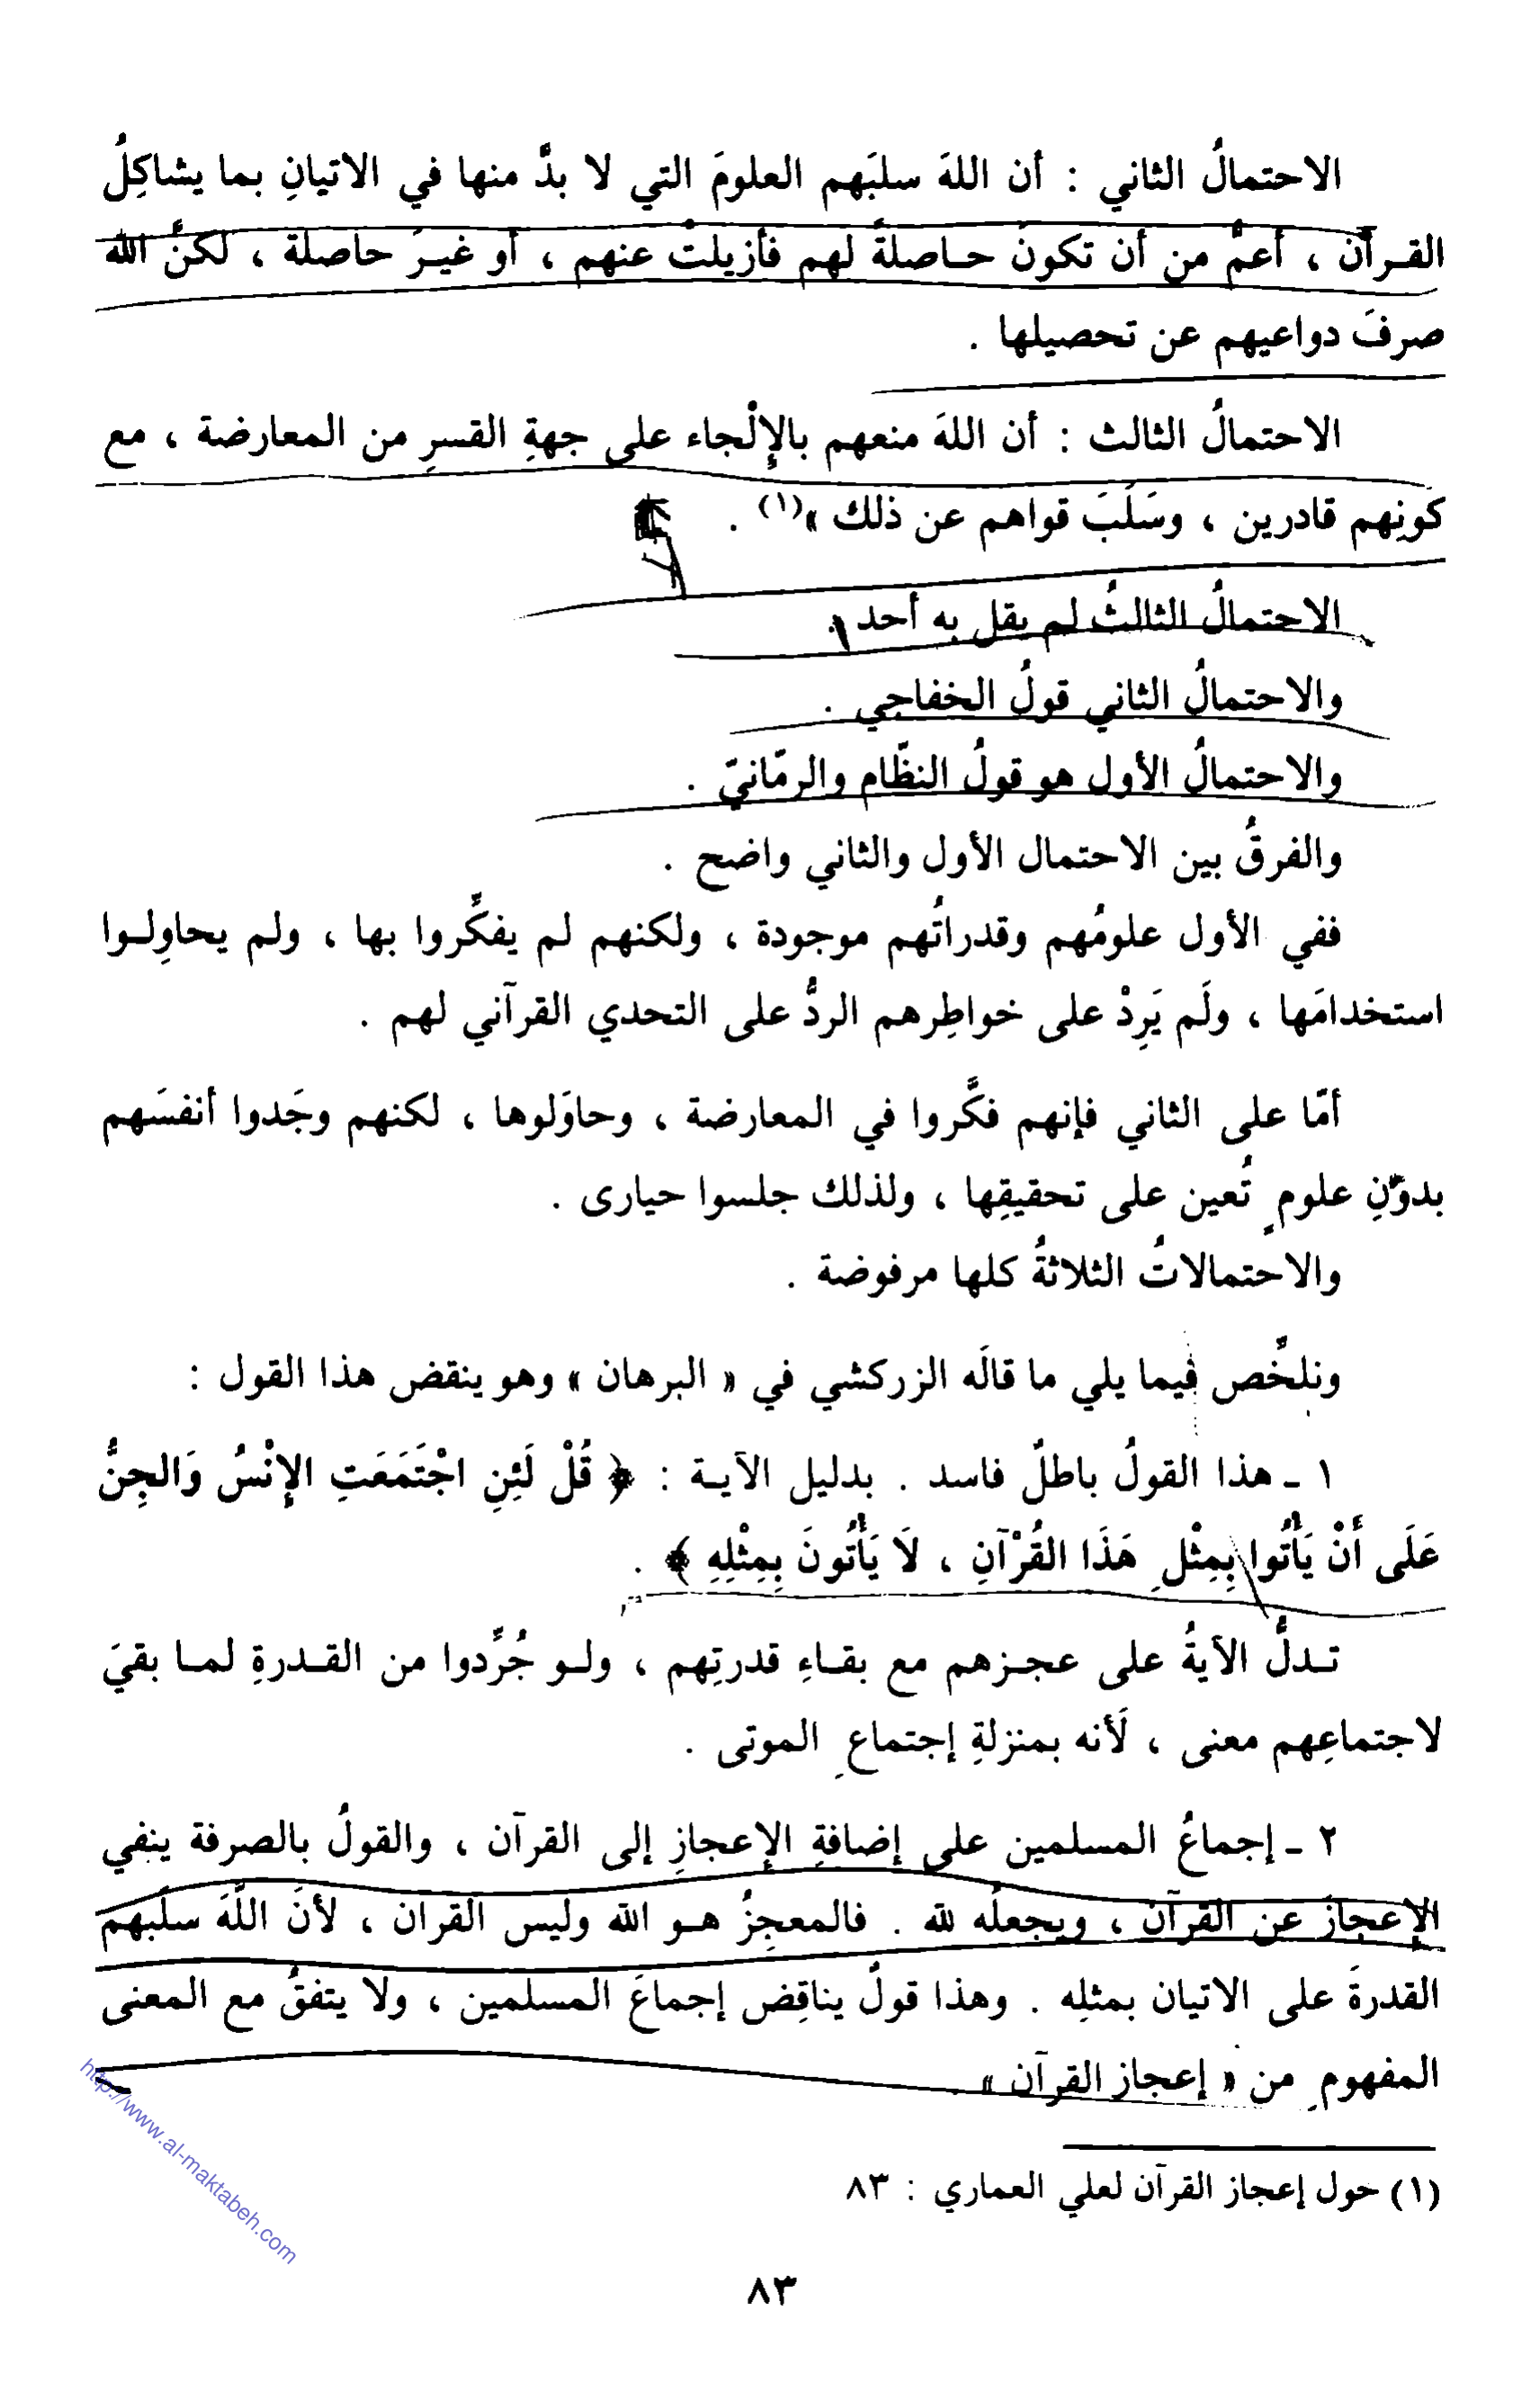 الاحتمالُ الثاني : أن اللهَ سلبَهم العلومَ التي لا بدَّ منها في الاتيانِ بما يشاكِلُ
القـرآن ، أعمُّ من أن تكونَ حـاصلةً لهم فأزيلتْ عنهم ، أو غيـرَ حاصلة ، لكنَّ الله
صرفَ دواعيهم عن تحصيلها .
الاحتمالُ الثالث : أن اللهَ منعهم بالإِلْجاء على جهةِ القسرِ من المعارضة ، مع
كونِهم قادرين ، وسَلَبَ قواهم عن ذلك »(١) .
الاحتمالُ الثالثُ لم يقل به أحد .
والاحتمالُ الثاني قولُ الخفاجي .
والاحتمالُ الأول هو قولُ النظّام والرمّانيّ .
والفرقُ بين الاحتمال الأول والثاني واضح .
ففي الأول علومُهم وقدراتُهم موجودة ، ولكنهم لم يفكِّروا بها ، ولم يحاوِلـوا
استخدامَها ، ولَم يَرِدْ على خواطِرهم الردُّ على التحدي القرآني لهم .
أمّا على الثاني فإنهم فكَّروا في المعارضة ، وحاوَلوها ، لكنهم وجَدوا أنفسَهم
بدوْنِ علومٍ تُعين على تحقيقِها ، ولذلك جلسوا حيارى .
والاحتمالاتُ الثلاثةُ كلها مرفوضة .
ونلخِّص فيما يلي ما قالَه الزركشي في « البرهان » وهو ينقض هذا القول :
١ ـ هذا القولُ باطلٌ فاسد . بدليل الآيـة : ﴿ قُلْ لَئِنِ اجْتَمَعَتِ الإِنْسُ وَالجِنُّ
عَلَى أَنْ يَأْتُوا بِمِثْلِ هَذَا القُرْآنِ ، لَا يَأْتُونَ بِمِثْلِهِ ﴾ .
تـدلُّ الآيةُ على عجـزهم مع بقـاءِ قدرتِهم ، ولـو جُرِّدوا من القـدرةِ لمـا بقيَ
لاجتماعِهم معنى ، لَأنه بمنزلةِ إجتماعِ الموتى .
٢ ـ إجماعُ المسلمين على إضافةِ الإعجازِ إلى القرآن ، والقولُ بالصرفة ينفي
الإعجازَ عن القرآن ، ويجعلُه لله . فالمعجِزُ هـو الله وليس القرآن ، لأنَ اللَّهَ سلَبهم
القدرةَ على الاتيان بمثلِه . وهذا قولٌ يناقِض إجماعَ المسلمين ، ولا يتفقُ مع المعنى
المفهومِ من « إعجاز القرآن » .
(١) حول إعجاز القرآن لعلي العماري : ٨٣
٨٣
http://www.al-maktabeh.com